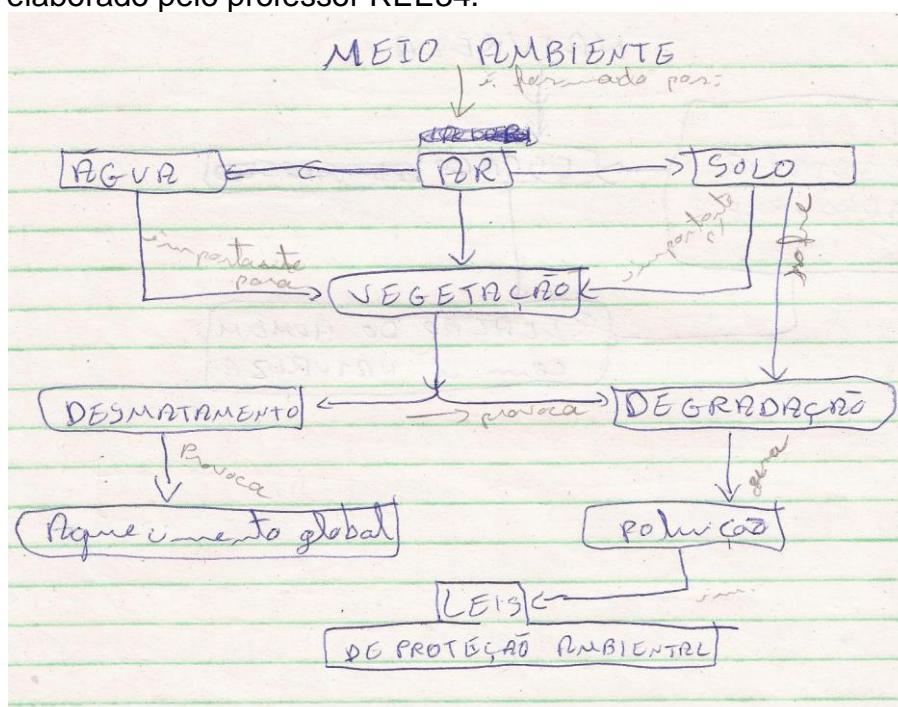 elaborado pelo professor REE34.
MEIO AMBIENTE
é formado por:
ÁGUA AR SOLO
importante para importante p/ sofre
VEGETAÇÃO
DESMATAMENTO provoca DEGRADAÇÃO
Provoca gera
Aquecimento global poluição
LEIS
DE PROTEÇÃO AMBIENTAL